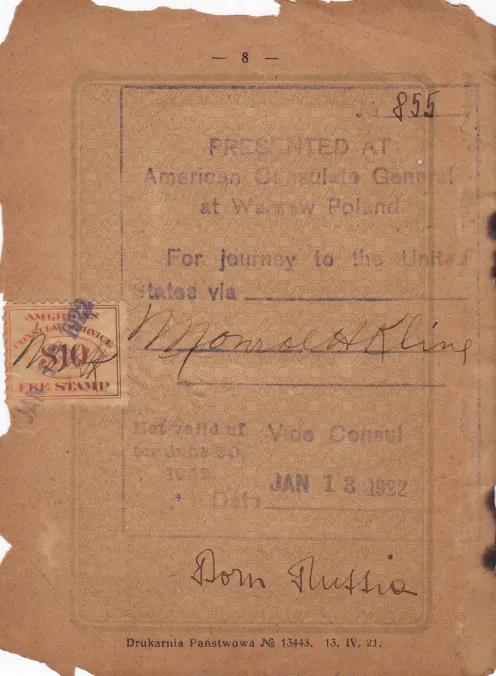 — 8 —
№ 855
PRESENTED AT
American Consulate General
at Warsaw Poland
For journey to the United
States via
Monroe H Kline
AMERICAN
CONSULAR SERVICE
$10
FEE STAMP
JAN 1922
Not valid af
ter June 30,
1922
Vice Consul
Date JAN 13 1922
Born Russia
Drukarnia Państwowa № 13443. 13. IV. 21.